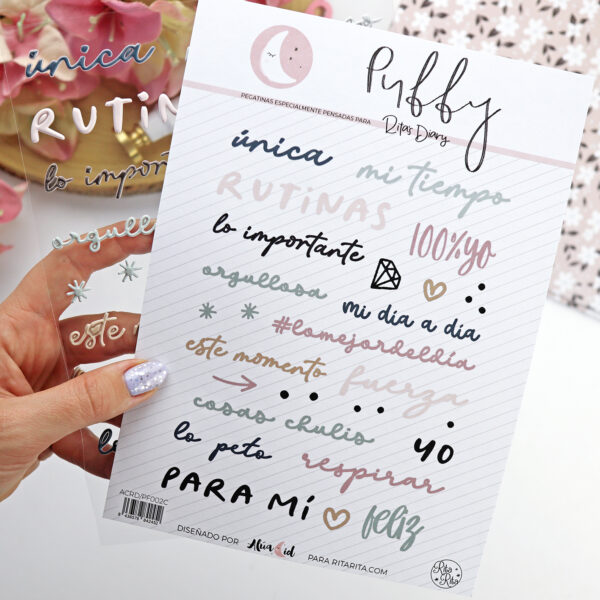 Puffy
PEGATINAS ESPECIALMENTE PENSADAS PARA
Ritas Diary
única
mi tiempo
RUTiNAS
100%yo
lo importante
orgullosa
mi día a día
#lomejordeldía
este momento
fuerza
cosas chulis
yo
lo peto
respirar
PARA MÍ
feliz
ACRD/PF002C
DISEÑADO POR
PARA RITARITA.COM
Rita Rita
única
RUTiN
lo impor
orgull
este
lo